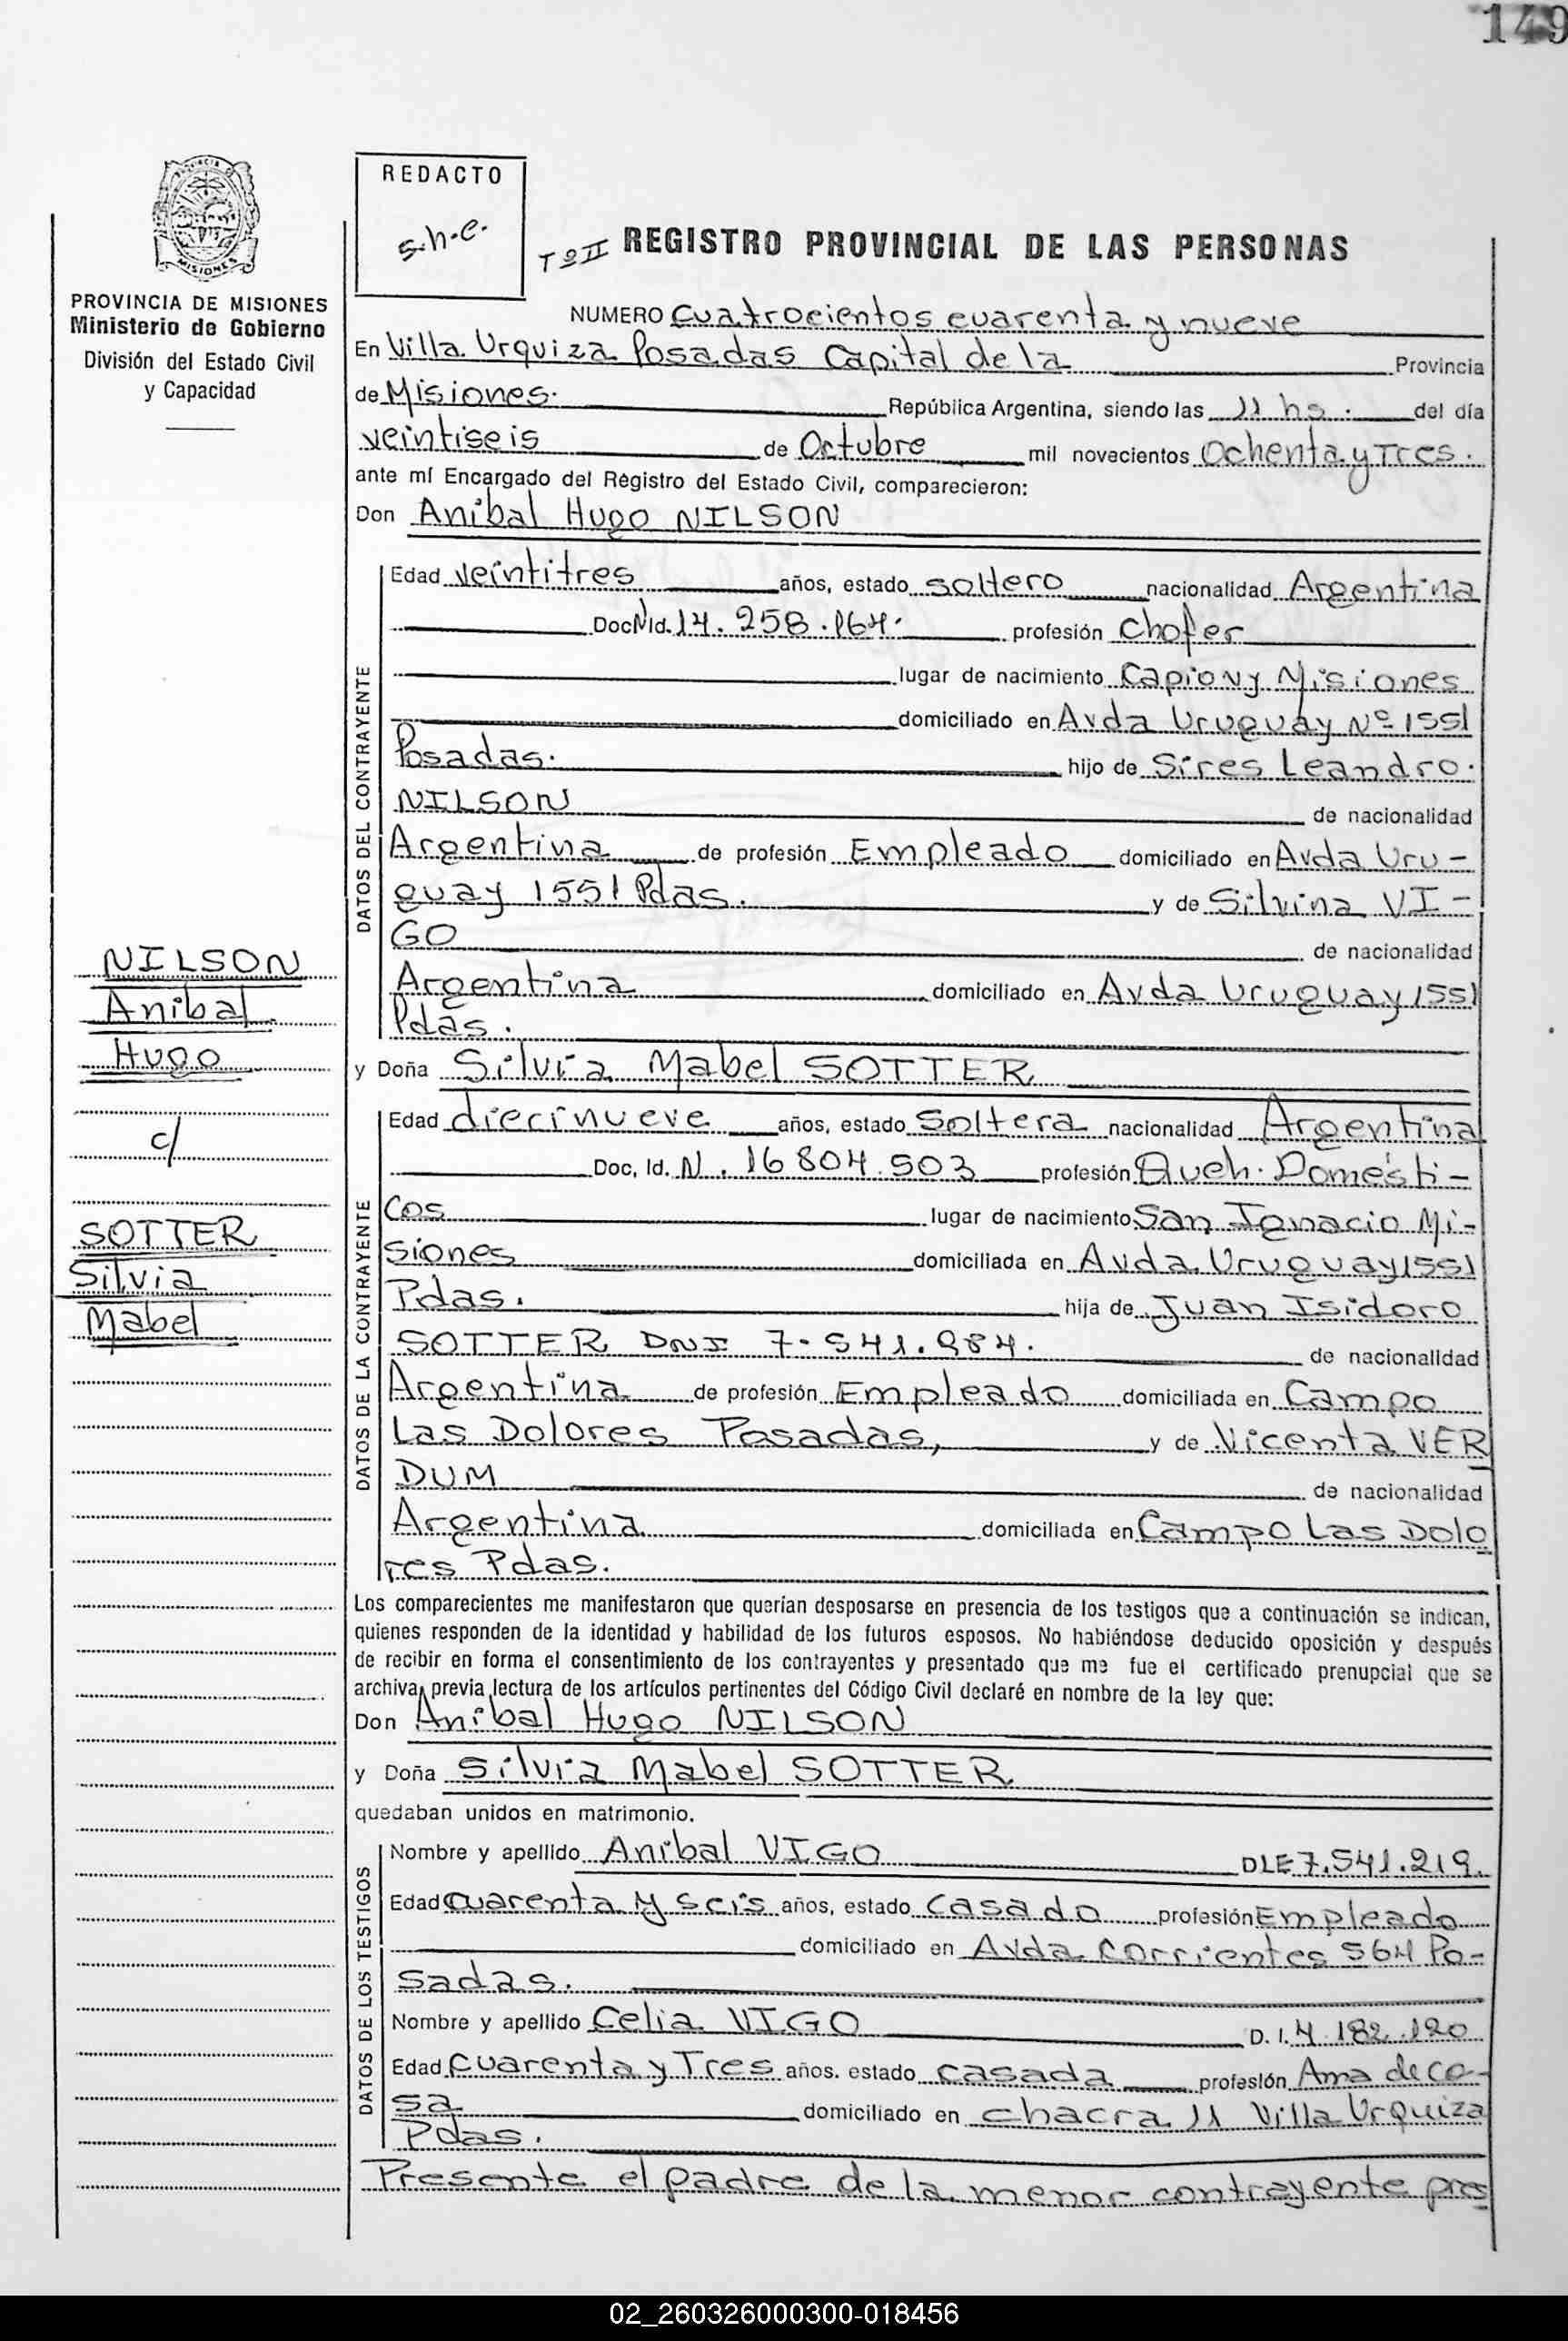 149
REDACTO
s.h.c.
PROVINCIA DE MISIONES
Ministerio de Gobierno
División del Estado Civil
y Capacidad
Tº II REGISTRO PROVINCIAL DE LAS PERSONAS
NUMERO Cuatrocientos cuarenta y nueve
En Villa Urquiza Posadas Capital de la Provincia
de Misiones. República Argentina, siendo las 11 hs. del día
veintiseis de Octubre mil novecientos Ochenta y Tres.
ante mí Encargado del Registro del Estado Civil, comparecieron:
Don Anibal Hugo NILSON
DATOS DEL CONTRAYENTE
Edad veintitres años, estado soltero nacionalidad Argentina
Doc. Id. 14.258.164. profesión Chofer
lugar de nacimiento Capiovy Misiones
domiciliado en Avda Uruguay Nº 1551
Posadas. hijo de Sires Leandro.
NILSON de nacionalidad
Argentina de profesión Empleado domiciliado en Avda Uru-
guay 1551 Pdas. y de Silvina VI-
GO de nacionalidad
Argentina domiciliado en Avda Uruguay 1551
Pdas.
NILSON
Anibal
Hugo
c/
SOTTER
Silvia
Mabel
y Doña Silvia Mabel SOTTER
DATOS DE LA CONTRAYENTE
Edad diecinueve años, estado Soltera nacionalidad Argentina
Doc, Id. N. 16804.503 profesión Queh. Domésti-
cos lugar de nacimiento San Ignacio Mi-
siones domiciliada en Avda. Uruguay 1551
Pdas. hija de Juan Isidoro
SOTTER DNI 7.541.984. de nacionalidad
Argentina de profesión Empleado domiciliada en Campo
Las Dolores Posadas, y de Vicenta VER
DUM de nacionalidad
Argentina domiciliada en Campo Las Dolo
res Pdas.
Los comparecientes me manifestaron que querían desposarse en presencia de los testigos que a continuación se indican,
quienes responden de la identidad y habilidad de los futuros esposos. No habiéndose deducido oposición y después
de recibir en forma el consentimiento de los contrayentes y presentado que me fue el certificado prenupcial que se
archiva, previa lectura de los artículos pertinentes del Código Civil declaré en nombre de la ley que:
Don Anibal Hugo NILSON
y Doña Silvia Mabel SOTTER
quedaban unidos en matrimonio.
DATOS DE LOS TESTIGOS
Nombre y apellido Anibal VIGO DLE 7.541.219.
Edad cuarenta y seis años, estado Casado profesión Empleado
domiciliado en Avda. Corrientes 564 Po-
sadas.
Nombre y apellido Celia VIGO D. I. 4.182.120
Edad cuarenta y Tres años. estado casada profesión Ama de ca-
sa domiciliado en chacra 11 Villa Urquiza
Pdas.
Presente el padre de la menor contrayente pres
02_260326000300-018456